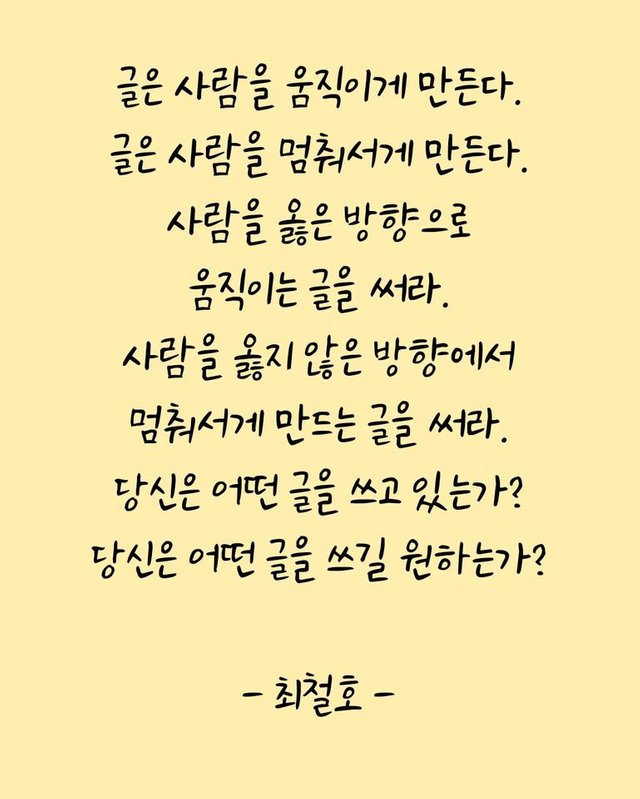 글은 사람을 움직이게 만든다.
글은 사람을 멈춰서게 만든다.
사람을 옳은 방향으로
움직이는 글을 써라.
사람을 옳지 않은 방향에서
멈춰서게 만드는 글을 써라.
당신은 어떤 글을 쓰고 있는가?
당신은 어떤 글을 쓰길 원하는가?
- 최철호 -